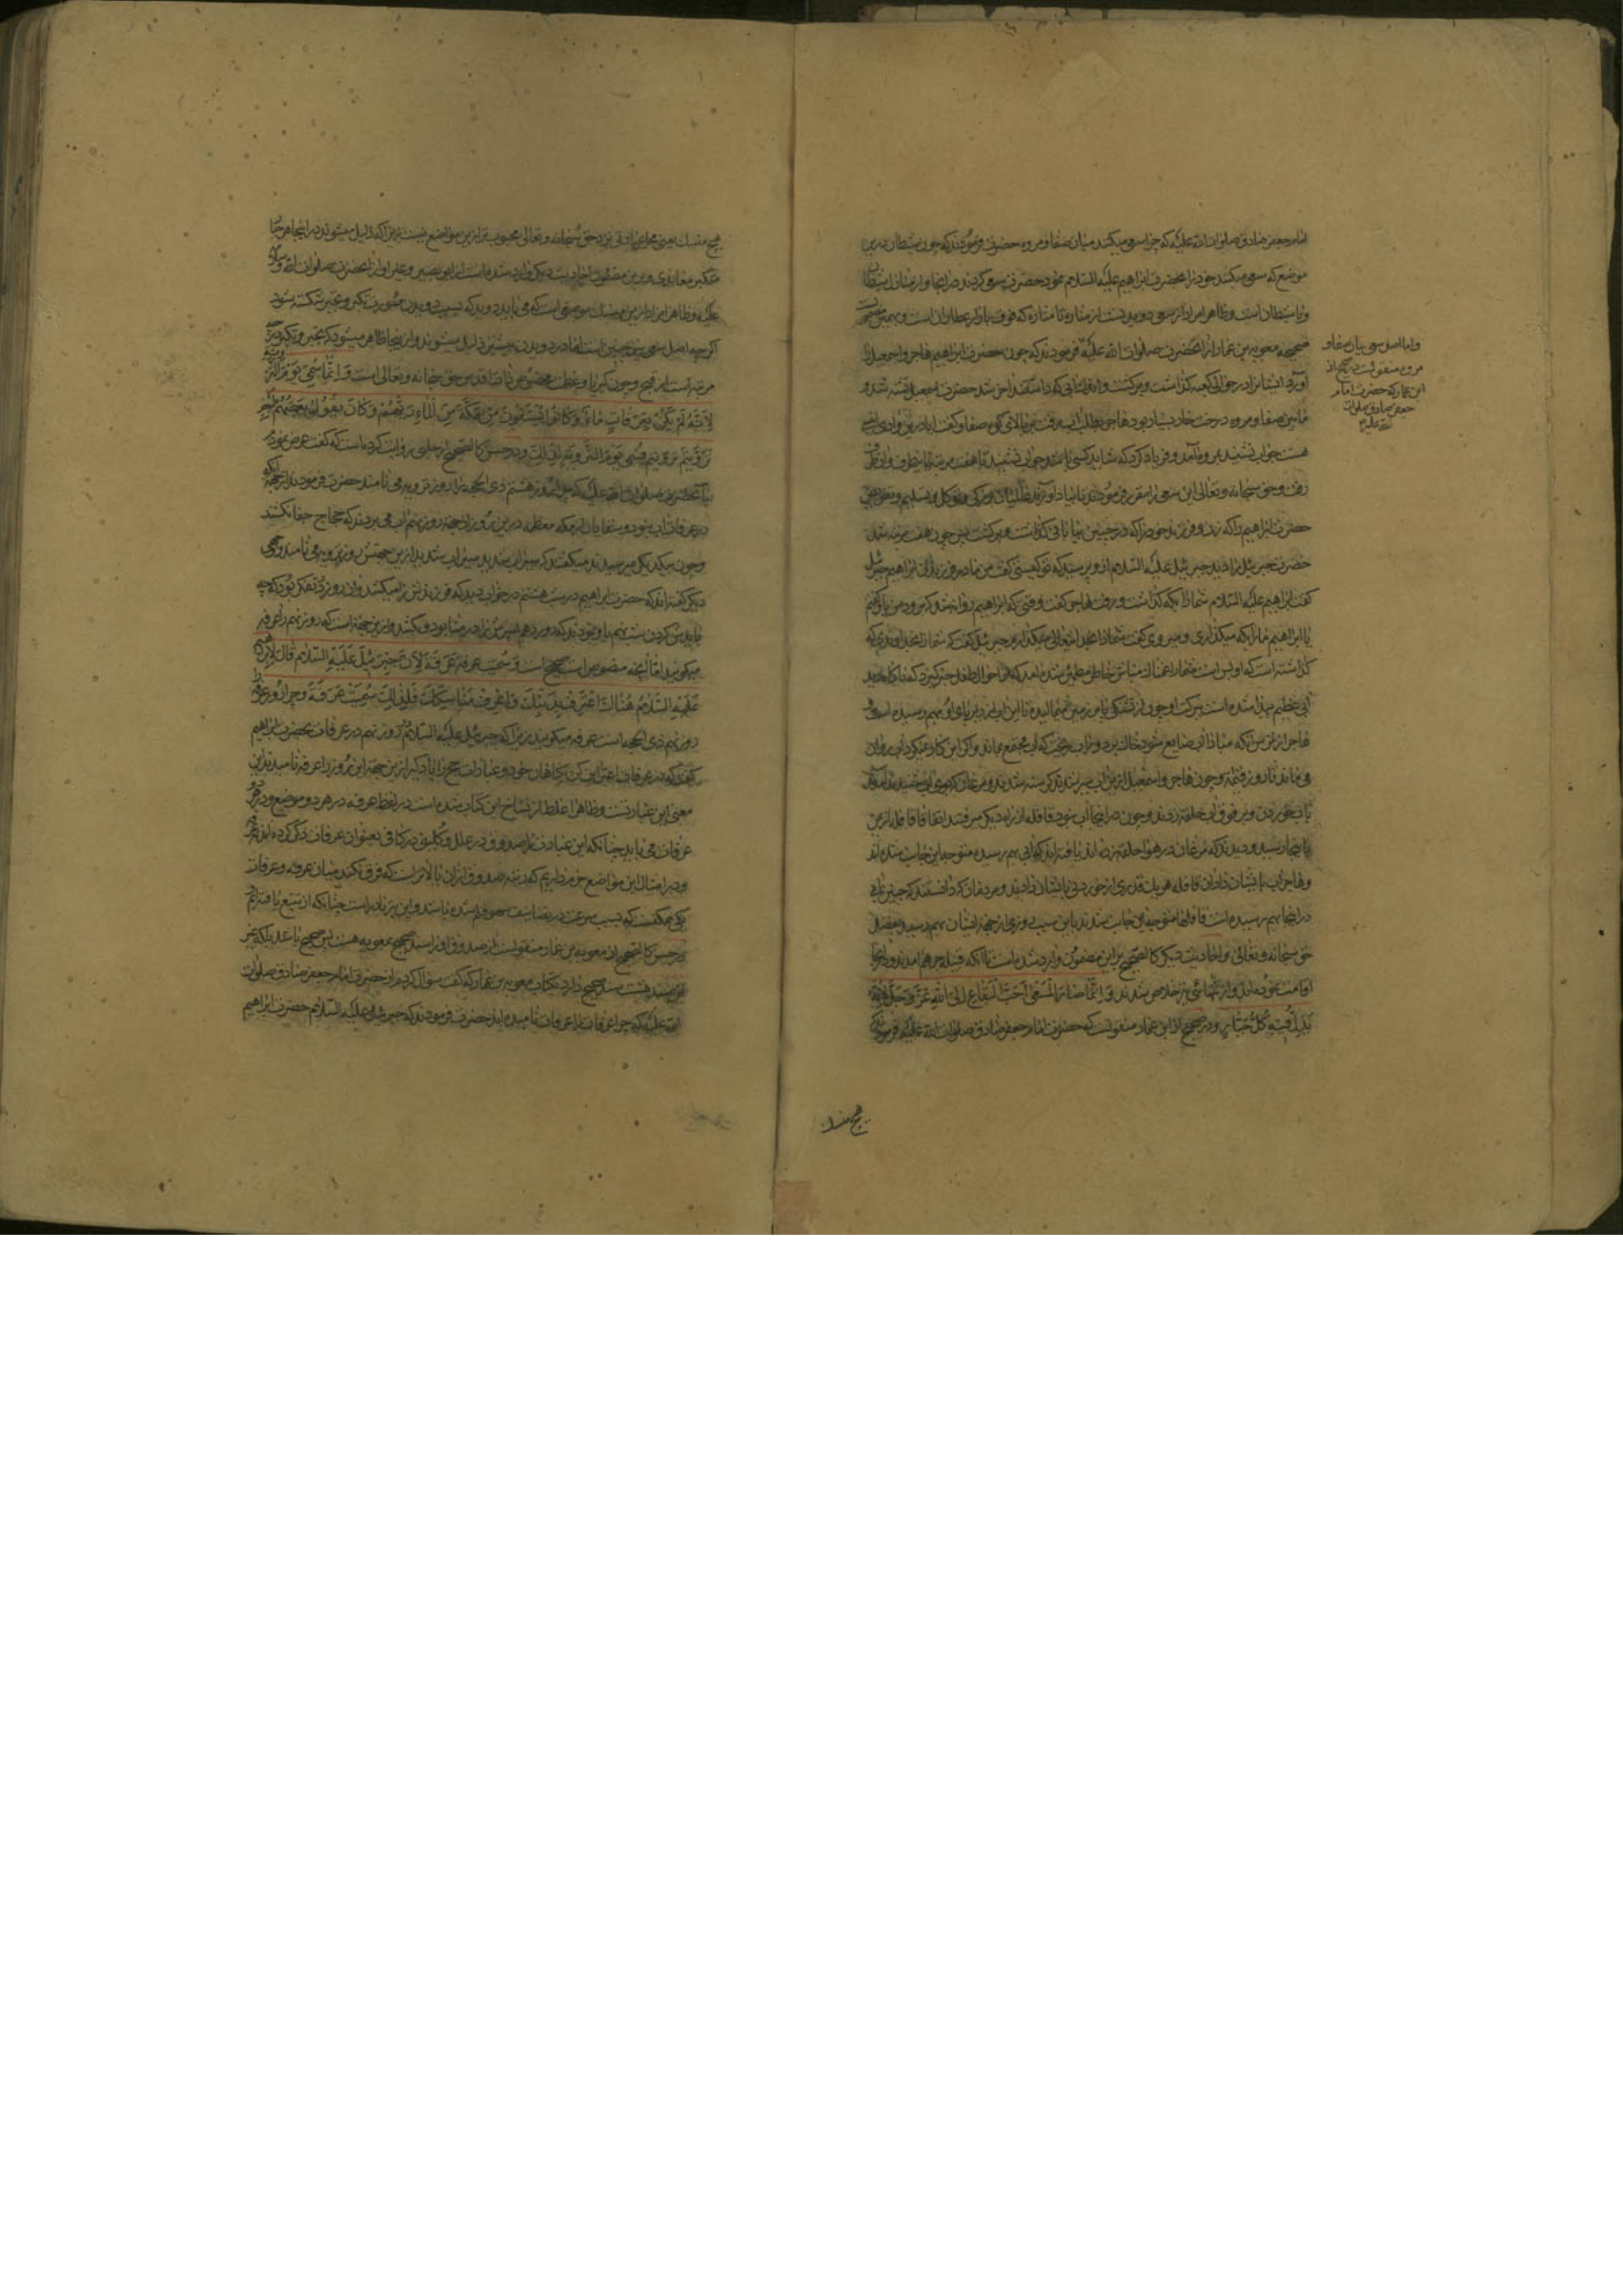 امام جعفر صادق صلوات الله علیه که چرا سعی میکنند میان صفا و مروه حضرت فرمودند که چون شیطان درین
موضع که سعی میکنند خود را بحضرت ابراهیم علیه السلام نمود حضرت سعی کردند در اینجا و از منازل شیطان
و یا شیطان است و ظاهرا مراد از سعی دویدنست از مناره تا مناره که فوق بازار عطاران است و
صحیحه معویه بن عمار از آنحضرت صلوات الله علیه فرمودند که چون حضرت ابراهیم هاجر و اسمعیل را
آورد ایشانرا در حوالی کعبه گذاشت و برگشت و اندک آبی که داشتند آخر شد حضرت اسمعیل تشنه شد و
مابین صفا و مروه درخت خار بسیار بود هاجر بطلب آب رفت بر بالای کوه صفا و گفت آیا درین وادی انیسی
هست جواب نشنید بمروه آمد و فریاد کرد که شاید کسی باشد جواب نشنید تا هفت مرتبه
رفت و حق سبحانه و تعالی این سعی را مقرر فرمودند تا بیاد آورند
حضرت ابراهیم را که زن و فرزند خود را که در چنین بیابانی گذاشت و برگشت پس چون هفت مرتبه شد
حضرت جبرئیل را دید جبرئیل علیه السلام از او پرسید که تو کیستی گفت من مادر فرزند ابراهیم جبرئیل
گفت ابراهیم علیه السلام شما را بکه گذاشت و رفت هاجر گفت وقتی که ابراهیم روانه شد که برود من باو گفتم
یا ابراهیم ما را بکه میگذاری و میروی گفت شما را بخداوند تعالی میگذارم جبرئیل گفت که شما را بخداوندی که
گذاشته است که او بس است
آبی عظیم پیدا شده است برگشت و چون
هاجر از ترس آنکه مبادا آب ضایع شود خاک بر دور آب ریخت که آب مجتمع بماند و اگر این کار نمیکرد آب روان
می ماند تا روز قیامت و چون هاجر و اسمعیل ازین آب سیر شدند
با آب خوردن و بر فوق آب حلقه زدند و چون در اینجا آب نبود قافله از راه دیگر میرفتند اتفاقا قافله از یمن
باینجا رسید و دیدند که مرغان در هوا حلقه زده اند یافتند که آبی بهم رسیده متوجه این جانب شده اند
و هاجر آب بایشان داد آن قافله هر یک قدری از خوردنی بایشان دادند و مردمان که دانستند که چنین آبی
در اینجا بهم رسیده است قافلها متوجه این جانب شدند باین سبب روزی از جهة ایشان بهم رسید و بفضل
حق سبحانه و تعالی و احادیث دیگر کالصحیح بر این مضمون وارد شده است تا آنکه قبیله جرهم آمدند و در اینجا
اقامت نمودند و از تنهائی نیز خلاص شدند وَ اِنَّما صارَ المَسعی اَحَبَّ البِقاعِ اِلَی اللهِ عَزَّ وَ جَلَّ لِاَنَّهُ
یَذِلُّ فیهِ کُلُّ جَبّارٍ و در صحیح از ابن عمار منقولست که حضرت امام جعفر صادق صلوات الله علیه فرمودند که
و اما اصل سعی میان صفا و
مروه منقولست در صحیح از
ابن عمار که حضرت امام
جعفر صادق صلوات
الله علیه
هیچ منسک
هیچ منسک یعنی محل عبادتی نزد حق سبحانه و تعالی محبوب تر ازین مواضع نیست زیرا که ذلیل میشوند در اینجا هر جبار
متکبر معاندی و برین مضمون احادیث دیگر وارد شده است از ابو بصیر و غیر او از آنحضرت صلوات الله و سلامه
علیه و ظاهرا مراد ازین منسک موضعی است که می باید دوید که بسبب دویدن صورت تکبر و تجبر شکسته شود
اگر چه اصل سعی نیز چنین است اما در دویدن بیشتر ذلیل میشوند و از اینجا ظاهر میشود که تجبر و تکبر در چه
مرتبه است از قبح و چون کبریا و عظمت مخصوص ذات اقدس حق سبحانه و تعالی است وَ اِنَّما سُمِّیَ یَومُ التَّرویَه
لِاَنَّهُ لَم یَکُن بِعَرَفاتٍ ماءٌ وَ کانُوا یَستَقُونَ مِن مَکَّةَ مِنَ الماءِ رِیَّهُم وَ کانَ یَقُولُ بَعضُهُم لِبَعضٍ
تَرَوَّیتُم تَرَوَّیتُم فَسُمِّیَ یَومَ التَّرویَة لِذلِکَ و در حسن کالصحیح از حلبی روایت کرده است که گفت عرض نمودم
بآنحضرت صلوات الله علیه که چرا روز هشتم ذی الحجه را روز ترویه می نامند حضرت فرمودند از جهة آنکه
در عرفات آب نبود و سقایان از مکه معظمه درین روز از جهة روز نهم آب می بردند که حجاج جفا نکشند
و چون بیکدیگر میرسیدند میگفتند که سیراب شدید سیراب شدید ازین جهتش روز ترویه می نامند و
دیگر گفته اند که حضرت ابراهیم در شب هشتم در خواب دید که فرزندش را میکشند و آن روز در تفکر بود که چه
باید کرد در شب نهم باو نمودند که در روز دهم پسرش را در منا بود و بکشد و ازین جهة است که روز نهم را عرفه
میگویند اما آنچه منصوص است صحیح است وَ سُمِّیَت عَرَفَةُ عَرَفَةَ لِاَنَّ جَبرَئیلَ عَلَیهِ السَّلامُ قالَ لِاِبراهیمَ
عَلَیهِ السَّلامُ هُناکَ اعتَرِف بِذَنبِکَ وَ اعرِف مَناسِکَکَ فَلِذلِکَ سُمِّیَت عَرَفَة و چرا روز عرفه را
روز نهم ذی الحجه است عرفه میگویند زیرا که جبرئیل علیه السلام روز نهم در عرفات بحضرت ابراهیم
گفت که در عرفات اعتراف کن بگناهان خود و عبادات حج را یاد گیر ازین جهة این روز را عرفه نامیدند این
معنی این عبارتست و ظاهرا غلط از نساخ این کتاب شده است در لفظ عرفه در هر دو موضع و در هر دو
عرفات می باید چنانکه این عبارت را صدوق در علل و کلینی در کافی بعنوان عرفات ذکر کرده اند
و در امثال این مواضع جزم داریم که رتبه صدوق از آن بالاتر است که فرق نکند میان عرفه و عرفات
بلی ممکنست که بسبب سرعت در تصانیف سهو قلم شده باشد و این نیز نادر است چنانکه از تتبع یافته ایم
در حسن کالصحیح از معویه بن عمار منقولست از صدوق
چند هشت سند صحیح دارد بکتاب معویه بن عمار که گفت سؤال کردم از حضرت امام جعفر صادق صلوات
الله علیه که چرا عرفات را عرفات نامیده اند حضرت فرمودند که جبرئیل علیه السلام حضرت ابراهیم